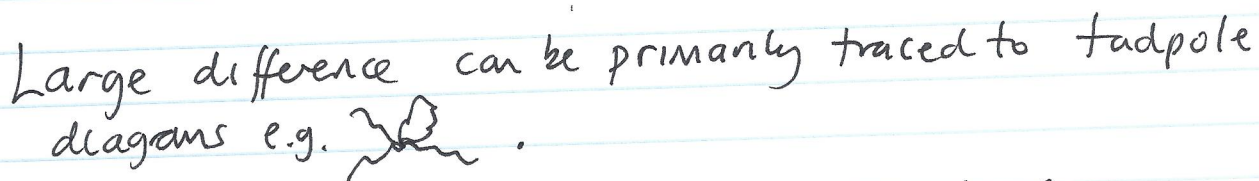 Large difference can be primarily traced to tadpole
diagrams e.g. .